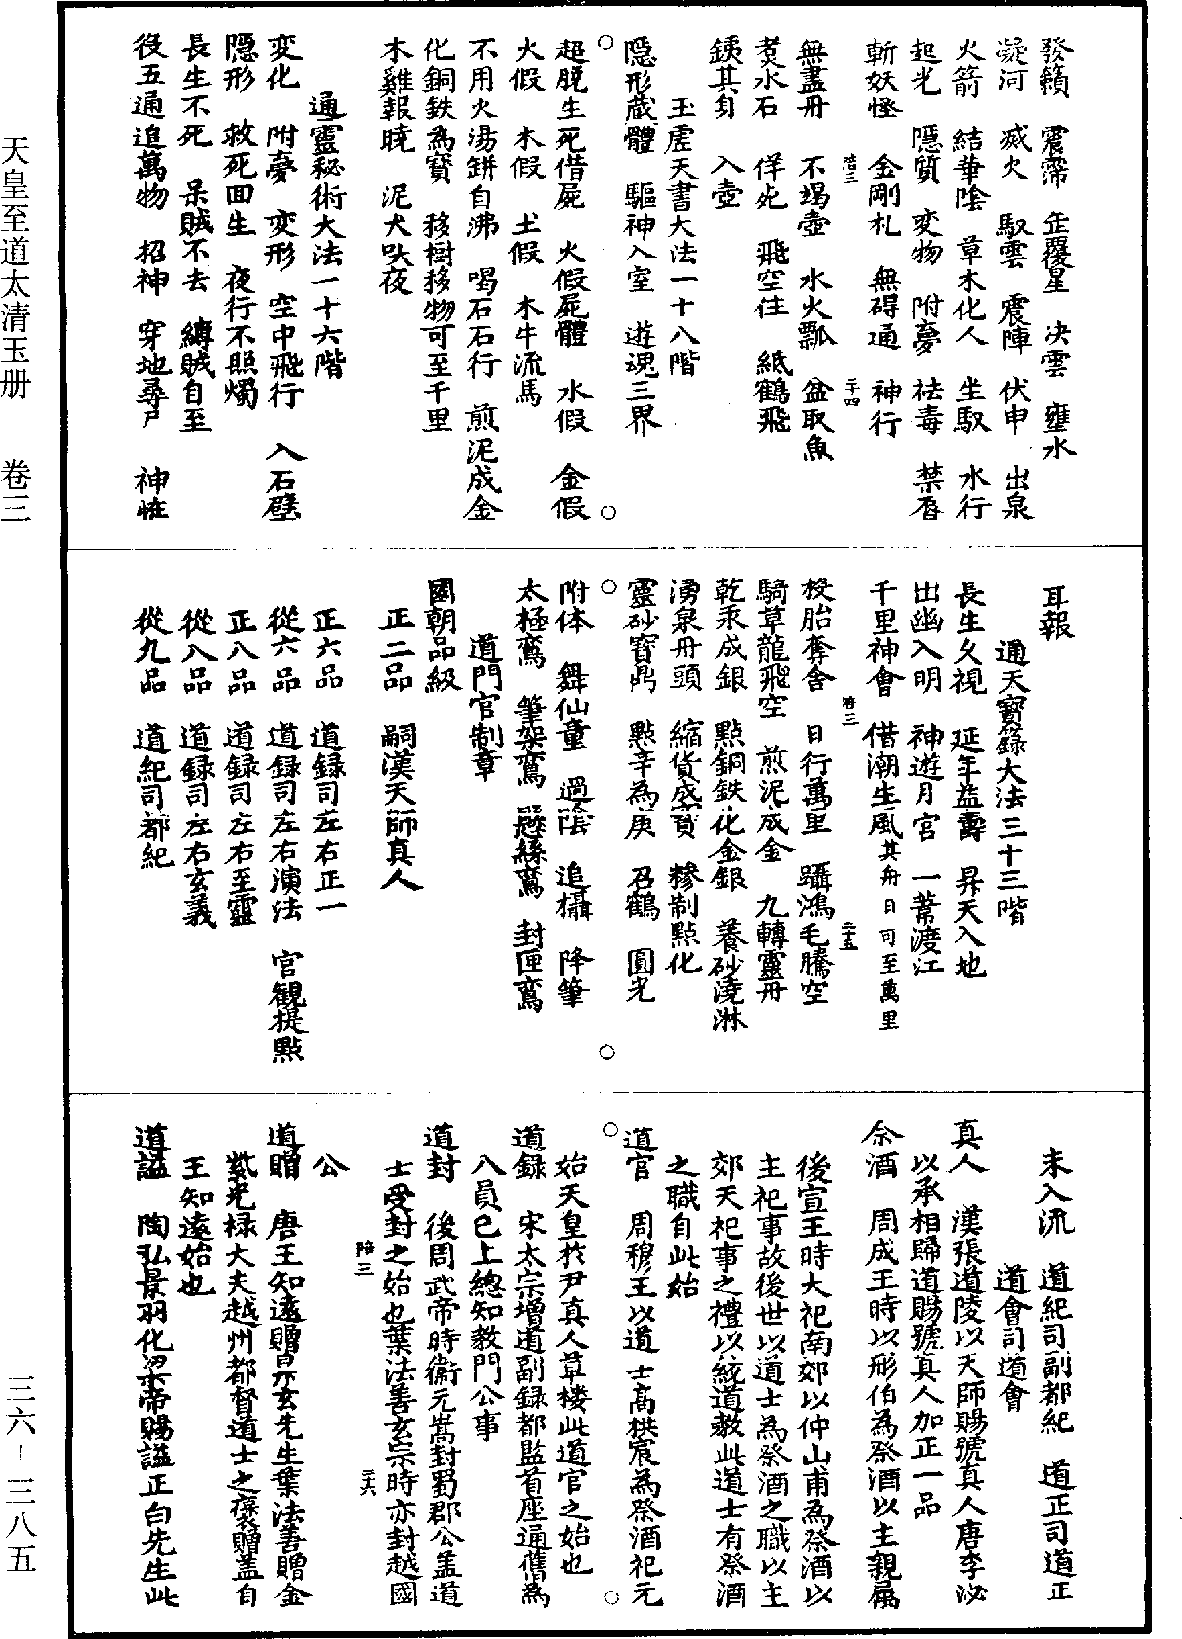 發籟　震霈　缶覆星　決雲　壅水
凝河　滅火　馭雲　震陣　伏申　出泉
火箭　結華陰　草木化人　坐馭　水行
起光　隱質　変物　附夢　袪毒　禁唇
斬妖怪　金剛札　無碍通　神行
陪三　二十四
無盡丹　不竭壺　水火瓢　盆取魚
煮水石　佯死　飛空住　紙鶴飛
鍈其身　入壺
玉虗天書大法一十八階
隱形蔵體　驅神入室　遊魂三界
超脫生死借屍　火假屍體　水假　金假
火假　木假　土假　木牛流馬
不用火湯缾自沸　喝石石行　煎泥成金
化銅鉄為寶　移樹移物可至千里
木雞報曉　泥犬吠夜
通靈秘術大法一十六階
変化　附夢　变形　空中飛行　入石壁
隱形　救死回生　夜行不照燭
長生不死　呆賊不去　縛賊自至
役五通追萬物　招神　穿地尋尸　神性
耳報
通天寶籙大法三十三階
長生久視　延年益壽　昇天入地
出幽入明　神遊月宮　一葦渡江
千里神會　借潮生風其舟日可至萬里
陪三　二十五
投胎奪舍　日行萬里　躡鴻毛騰空
騎草龍飛空　煎泥成金　九轉靈丹
乾汞成銀　點銅鉄化金銀　養砂澆淋
湧泉丹頭　縮貨成寳　糝制點化
靈砂寶鼎　點辛為庚　召鶴　圓光
附体　舞仙童　過陰　追攝　降筆
太極鸞　筆架鸞　懸絲鸞　封匣鸞
道門官制章
國朝品級
正二品　嗣漢天師真人
正六品　道録司左右正一
從六品　道録司左右演法　官観提點
正八品　道録司左右至靈
從八品　道録司左右玄義
從九品　道紀司都紀
未入流　道紀司副都紀　道正司道正
道會司道會
真人　漢張道陵以天師賜號真人唐李泌
以承相歸道賜號真人加正一品
祭酒　周成王時以形伯為祭酒以主親屬
後宣王時大祀南郊以仲山甫為祭酒以
主祀事故後世以道士為祭酒之職以主
郊天祀事之禮以統道教此道士有祭酒
之職自此始
道官　周穆王以道士高栱宸為祭酒祀元
始天皇於尹真人草楼此道官之始也
道録　宋太宗增道副録都監首座通舊為
八員已上總知教門公事
道封　後周武帝時衞元嵩封蜀郡公盖道
士受封之始也葉法善玄宗時亦封越國
陪三　二十六
公
道贈　唐王知遠贈昇玄先生葉法善贈金
紫光禄大夫越州都督道士之褒贈盖自
王知遠始也
道謚　陶弘景羽化梁帝賜謚正白先生此
天皇至道太清玉册　卷三
三六－三八五